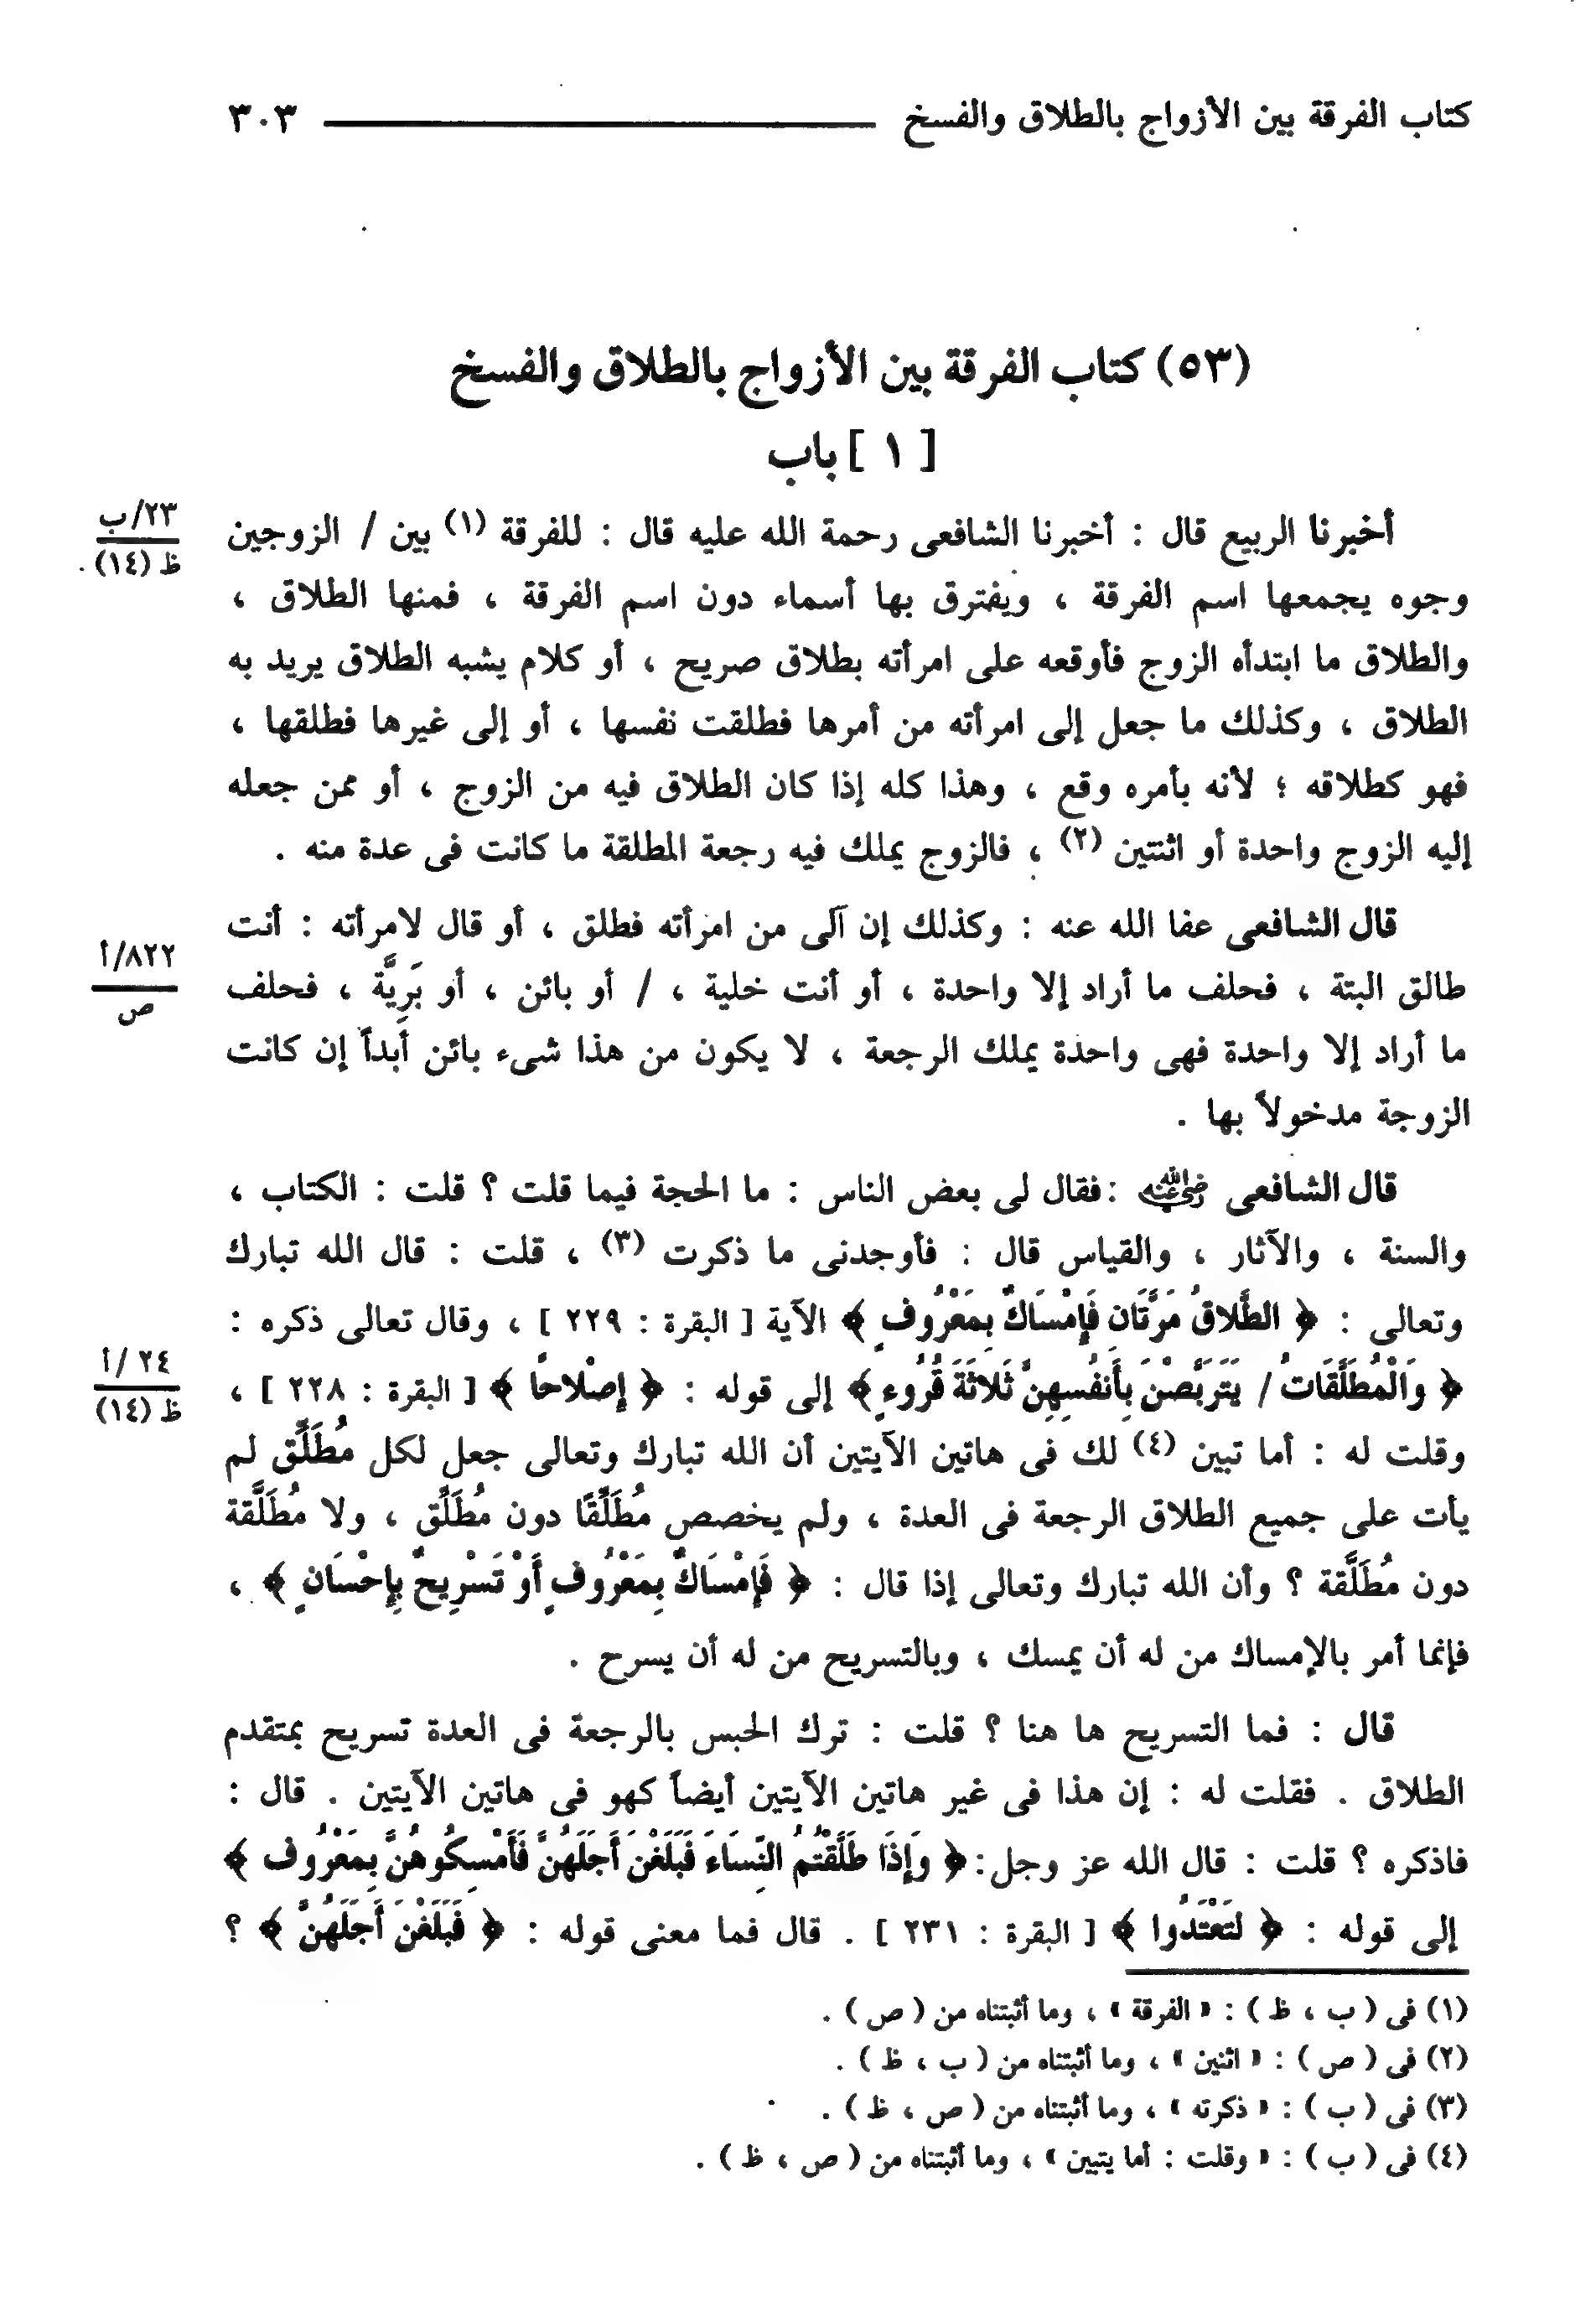 كتاب الفرقة بين الأزواج بالطلاق والفسخ ٣٠٣
(٥٣) كتاب الفرقة بين الأزواج بالطلاق والفسخ
[ ١ ] باب
أخبرنا الربيع قال : أخبرنا الشافعى رحمة الله عليه قال : للفرقة (١) بين / الزوجين
٢٣/ب
ظ (١٤)
وجوه يجمعها اسم الفرقة ، ويفترق بها أسماء دون اسم الفرقة ، فمنها الطلاق ،
والطلاق ما ابتدأه الزوج فأوقعه على امرأته بطلاق صريح ، أو كلام يشبه الطلاق يريد به
الطلاق ، وكذلك ما جعل إلى امرأته من أمرها فطلقت نفسها ، أو إلى غيرها فطلقها ،
فهو كطلاقه ؛ لأنه بأمره وقع ، وهذا كله إذا كان الطلاق فيه من الزوج ، أو ممن جعله
إليه الزوج واحدة أو اثنتين (٢) ، فالزوج يملك فيه رجعة المطلقة ما كانت فى عدة منه .
قال الشافعى عفا الله عنه : وكذلك إن آلى من امرأته فطلق ، أو قال لامرأته : أنت
طالق البتة ، فحلف ما أراد إلا واحدة ، أو أنت خلية ، / أو بائن ، أو بَرِيَّة ، فحلف
٨٢٢/أ
ص
ما أراد إلا واحدة فهى واحدة يملك الرجعة ، لا يكون من هذا شىء بائن أبداً إن كانت
الزوجة مدخولاً بها .
قال الشافعى رضي الله عنه : فقال لى بعض الناس : ما الحجة فيما قلت ؟ قلت : الكتاب ،
والسنة ، والآثار ، والقياس قال : فأوجدنى ما ذكرت (٣) ، قلت : قال الله تبارك
وتعالى : ﴿ الطَّلاقُ مَرَّتَانِ فَإِمْسَاكٌ بِمَعْرُوفٍ ﴾ الآية [ البقرة : ٢٢٩ ] ، وقال تعالى ذكره :
﴿ وَالْمُطَلَّقَاتُ / يَتَرَبَّصْنَ بِأَنفُسِهِنَّ ثَلاثَةَ قُرُوءٍ ﴾ إلى قوله : ﴿ إِصْلاحًا ﴾ [ البقرة : ٢٢٨ ] ،
٢٤ /أ
ظ (١٤)
وقلت له : أما تبين (٤) لك فى هاتين الآيتين أن الله تبارك وتعالى جعل لكل مُطَلِّق لم
يأت على جميع الطلاق الرجعة فى العدة ، ولم يخصص مُطَلِّقًا دون مُطَلِّق ، ولا مُطَلَّقة
دون مُطَلَّقة ؟ وأن الله تبارك وتعالى إذا قال : ﴿ فَإِمْسَاكٌ بِمَعْرُوفٍ أَوْ تَسْرِيحٌ بِإِحْسَانٍ ﴾ ،
فإنما أمر بالإمساك من له أن يمسك ، وبالتسريح من له أن يسرح .
قال : فما التسريح ها هنا ؟ قلت : ترك الحبس بالرجعة فى العدة تسريح بمتقدم
الطلاق . فقلت له : إن هذا فى غير هاتين الآيتين أيضاً كهو فى هاتين الآيتين . قال :
فاذكره ؟ قلت : قال الله عز وجل: ﴿ وَإِذَا طَلَّقْتُمُ النِّسَاءَ فَبَلَغْنَ أَجَلَهُنَّ فَأَمْسِكُوهُنَّ بِمَعْرُوفٍ ﴾
إلى قوله : ﴿ لِتَعْتَدُوا ﴾ [ البقرة : ٢٣١ ] . قال فما معنى قوله : ﴿ فَبَلَغْنَ أَجَلَهُنَّ ﴾ ؟
(١) فى ( ب ، ظ ) : « الفرقة » ، وما أثبتناه من ( ص ) .
(٢) فى ( ص ) : « اثنين » ، وما أثبتناه من ( ب ، ظ ) .
(٣) فى ( ب ) : « ذكرته » ، وما أثبتناه من ( ص ، ظ ) .
(٤) فى ( ب ) : « وقلت : أما يتبين » ، وما أثبتناه من ( ص ، ظ ) .